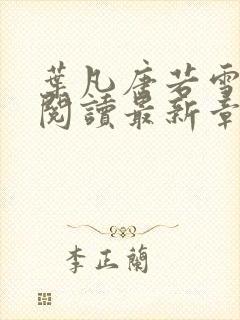 葉凡唐若雪
閱讀最新章
李正蘭